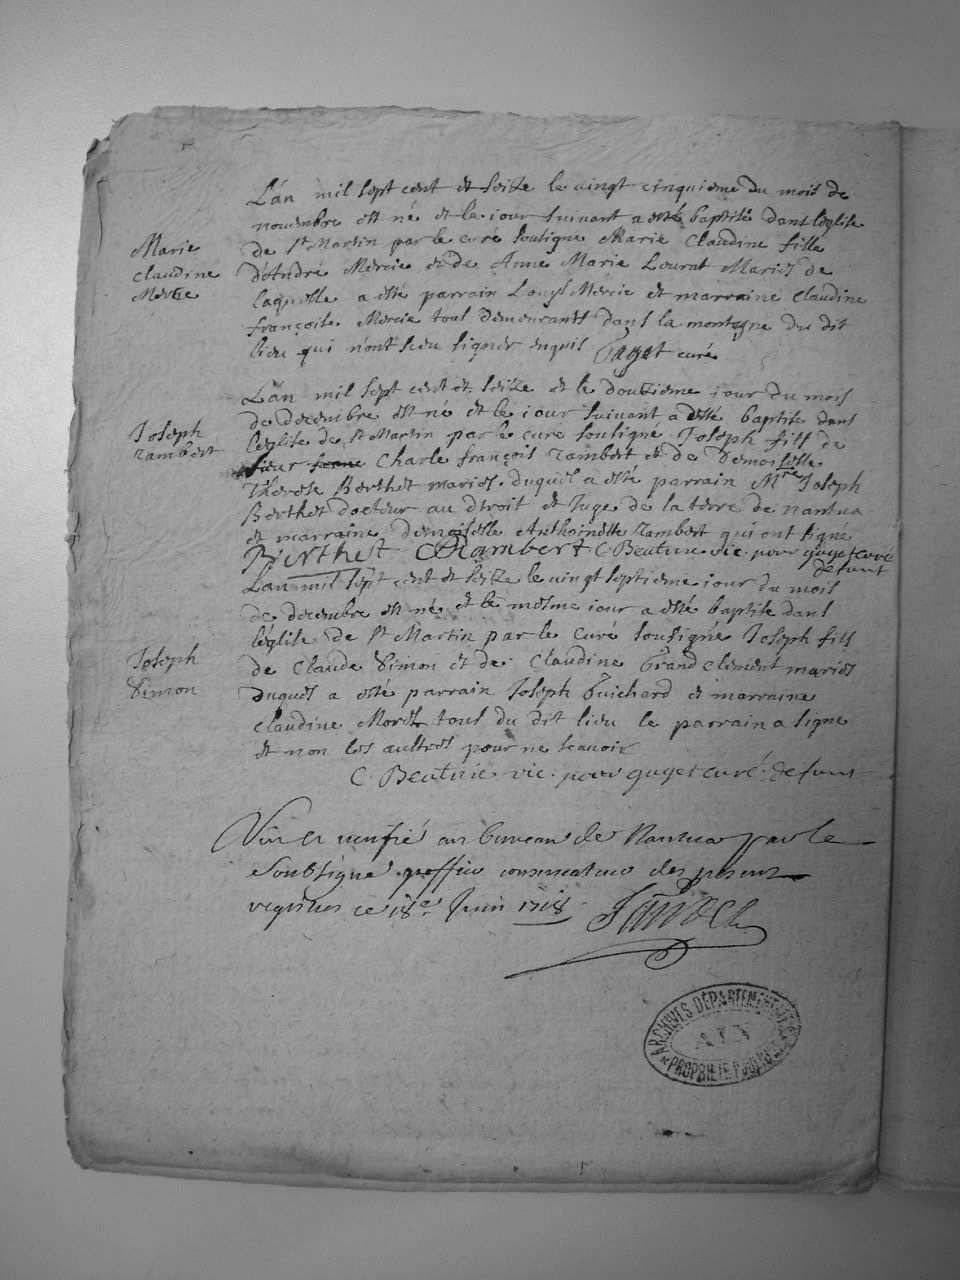 L'an mil sept cent et seize le vingt cinquieme du mois de
novembre est né et le iour suivant a esté baptisé dans l'eglise
de St Martin par le curé sousigné Marie Claudine fille
Marie
Claudine
Mercie
d'André Mercie et de Anne Marie Lourat Mariés de
laquelle a esté parrain Louys Mercie et marraine Claudine
françoise Mercie tous demeurants dans la montagne du dit
lieu qui n'ont sceu signer enquis Guget curé
L'an mil sept cent et seize et le douzieme iour du mois
de decembre est né et le iour suivant a esté baptisé dans
Joseph
rambert
l'eglise de St Martin par le curé sousigné Joseph fils de
sieur Charle françois rambert et de Demoiselle
Therese Berthet mariés. duquel a esté parrain Mre Joseph
Berthet docteur au droit et Juge de la terre de nantua
et marraine demoiselle Anthoinette rambert qui ont signé
Berthet Rambert C Beatrix vic. pour guget curé
defunt
L'an mil sept cent et seize le vingt septieme iour du mois
de decembre est né et le mesme iour a esté baptisé dans
l'eglise de St Martin par le curé sousigné Joseph fils
Joseph
Simon
de Claude Simon et de Claudine Grandclement mariés
duquel a esté parrain Joseph Guichard et marraine
Claudine Morel tous du dit lieu le parrain a signé
et non les aultres pour ne scavoir
C. Beatrix vic. pour guget curé. defunt
Vû et veriffié au bureau de Nantua par le
Soubsigné greffier conservateur des presents
registres ce 18e Juin 1718
ARCHIVES DÉPARTEMENTALES
AIN
PROPRIÉTÉ PUBLIQUE